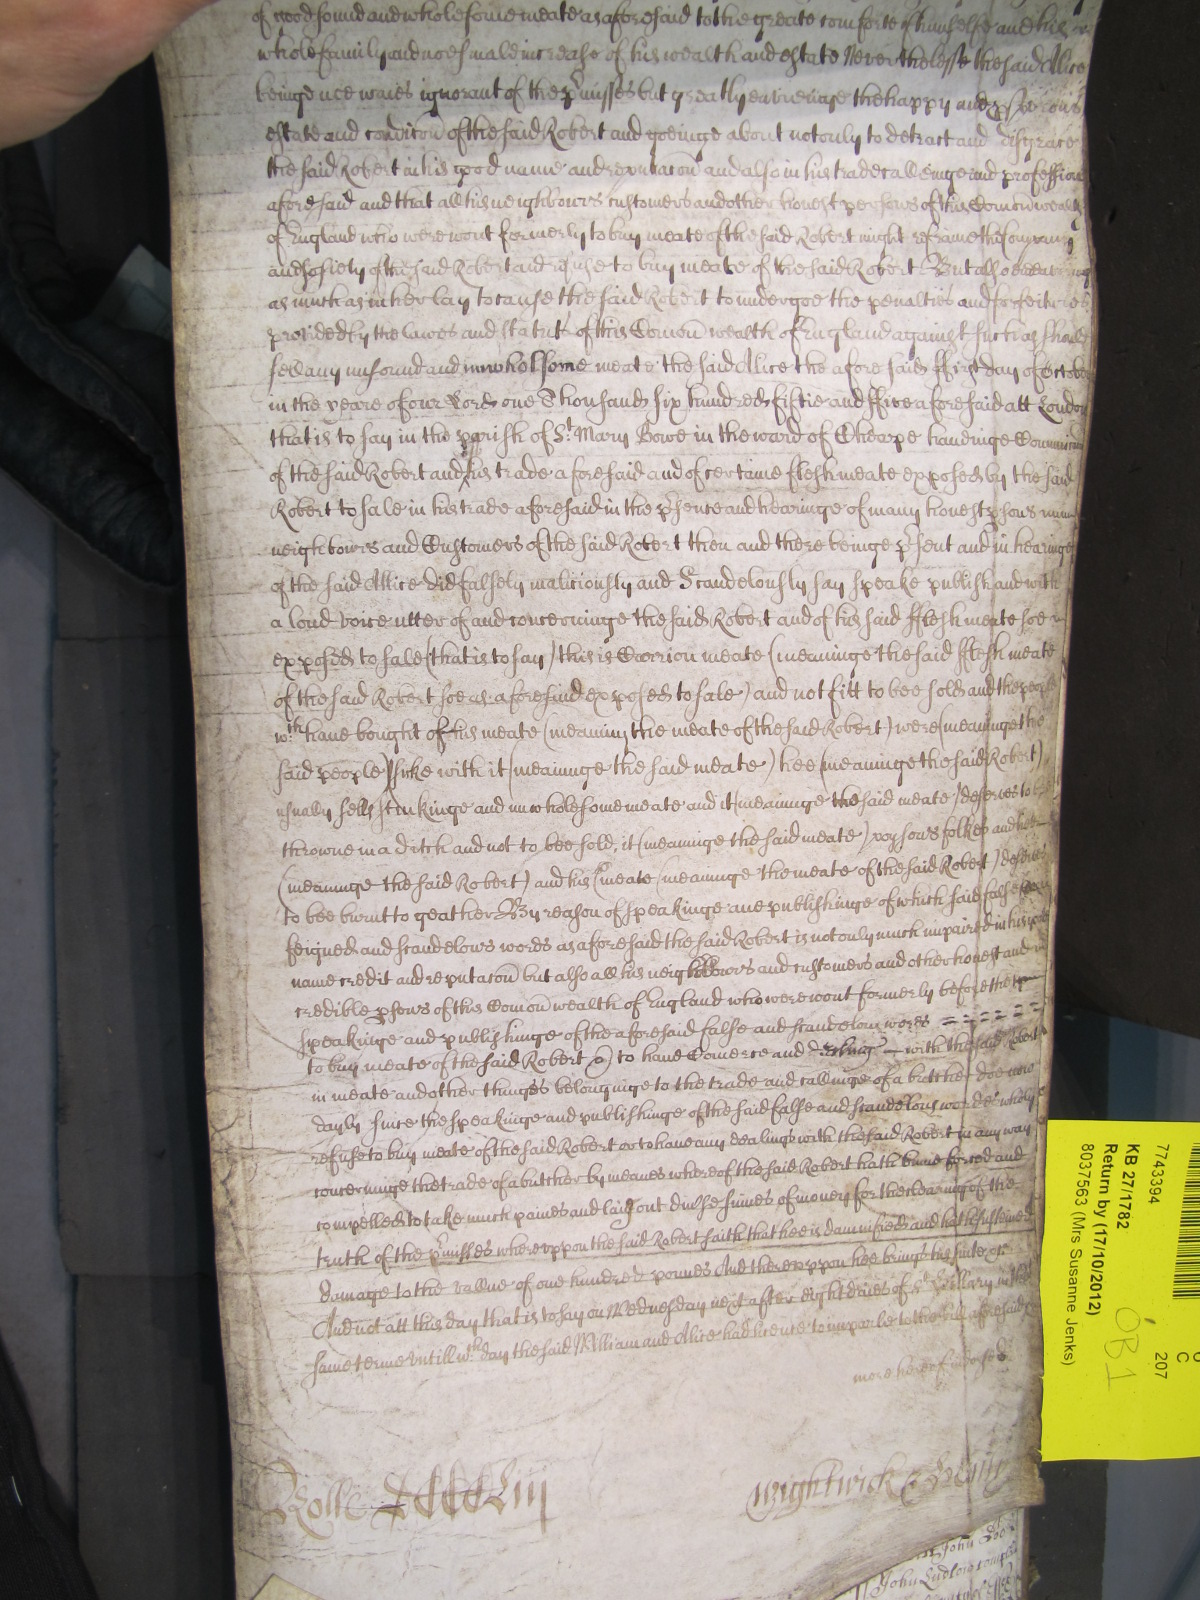 of good sound and wholesome meate as aforesaid to the greate comforte of himselfe and his
whole family and noe smale increase of his wealth and estate Neverthelesse the said Alice
beinge noe waies ignorant of the pmisses but greatly envieinge the happy and
estate and condicon of the said Robert and goeinge about not only to detract and disgrace
the said Robert in his good name and reputacon and also in his trade callinge and profession
aforesaid and that all his neighbours customers and other honest persons of this Comonwealth
of England who were wont formerly to buy meate of the said Robert might refraine the company
and society of the said Robert and refuse to buy meate of the said Robert But also
as much as in her lay to cause the said Robert to undergoe the penalties and forfeitures
provided by the lawes and statuts of this Comon wealth of England against such as should
sell any unsound and unwholsome meate the said Alice the aforesaid ffirst day of October
in the yeare of our Lord one Thousand six hundred fiftie and ffive aforesaid att London
that is to say in the parish of St Mary Bowe in the ward of Cheape haveinge
of the said Robert and his trade aforesaid and of certaine flesh meate exposed by the said
Robert to sale in his trade aforesaid in the psence and hearinge of many honest psons
neighbours and Customers of the said Robert then and there beinge psent and in hearinge
of the said Allice did falsely maliciously and Scandelously say speake publish and with
a loud voice utter of and concerninge the said Robert and of his said fflesh meate soe
exposed to sale (that is to say) this is Carrion meate (meaninge the said fflesh meate
of the said Robert soe as aforesaid exposed to sale) and not fitt to bee sold and the people
wch have bought of his meate (meaning the meate of the said Robert) were (meaninge the
said people) sicke with it (meaninge the said meate) hee (meaninge the said Robert)
usually sells stinkinge and unwholesome meate and it (meaninge the said meate) deserves to
throwne in a ditch and not to bee sold, it (meaninge the said meate) poysons folkes and hee
(meaninge the said Robert) and his meate (meaninge the meate of the said Robert) deserve
to bee burnt to geather By reason of speakinge and publishinge of which said false
feigned and scandelows words as aforesaid the said Robert is not only much impaired in his good
name credit and reputacon but also all his neighbours and customers and other honest and
credible psons of this Comon wealth of England who were wont formerly before the
speakinge and publishinge of the aforesaid false and scandelous words
to buy meate of the said Robert or to have Comerce and dealing with the said Robert
in meate and other things belonginge to the trade and callinge of a butcher doe now
dayly since the speakinge and publishinge of the said false and scandelous wordes wholy
refuse to buy meate of the said Robert or to have any dealings with the said Robert in any way
concerninge the trade of a butcher by meanes whereof the said Robert hath binne forced and
compelled to take much paines and lay out diverse sumes of money for the clearing of the
truth of the pmisses whereuppon the said Robert saith that hee is damnified and hath susteined
damage to the vallue of one hundred pounds And thereuppon hee brings his suite &c
And att this day that is to say on Wednesday next after eight daies of St Hillary in the
same terme untill wch day the said William and Alice had licence to imparle to the bill aforesaid
more hereof indorsed
Rolle
wightwick
John
John Ludlow
7743394
KB 27/1782
Return by (17/10/2012)
8037563 (Mrs Susanne Jenks)
C
207
OB1